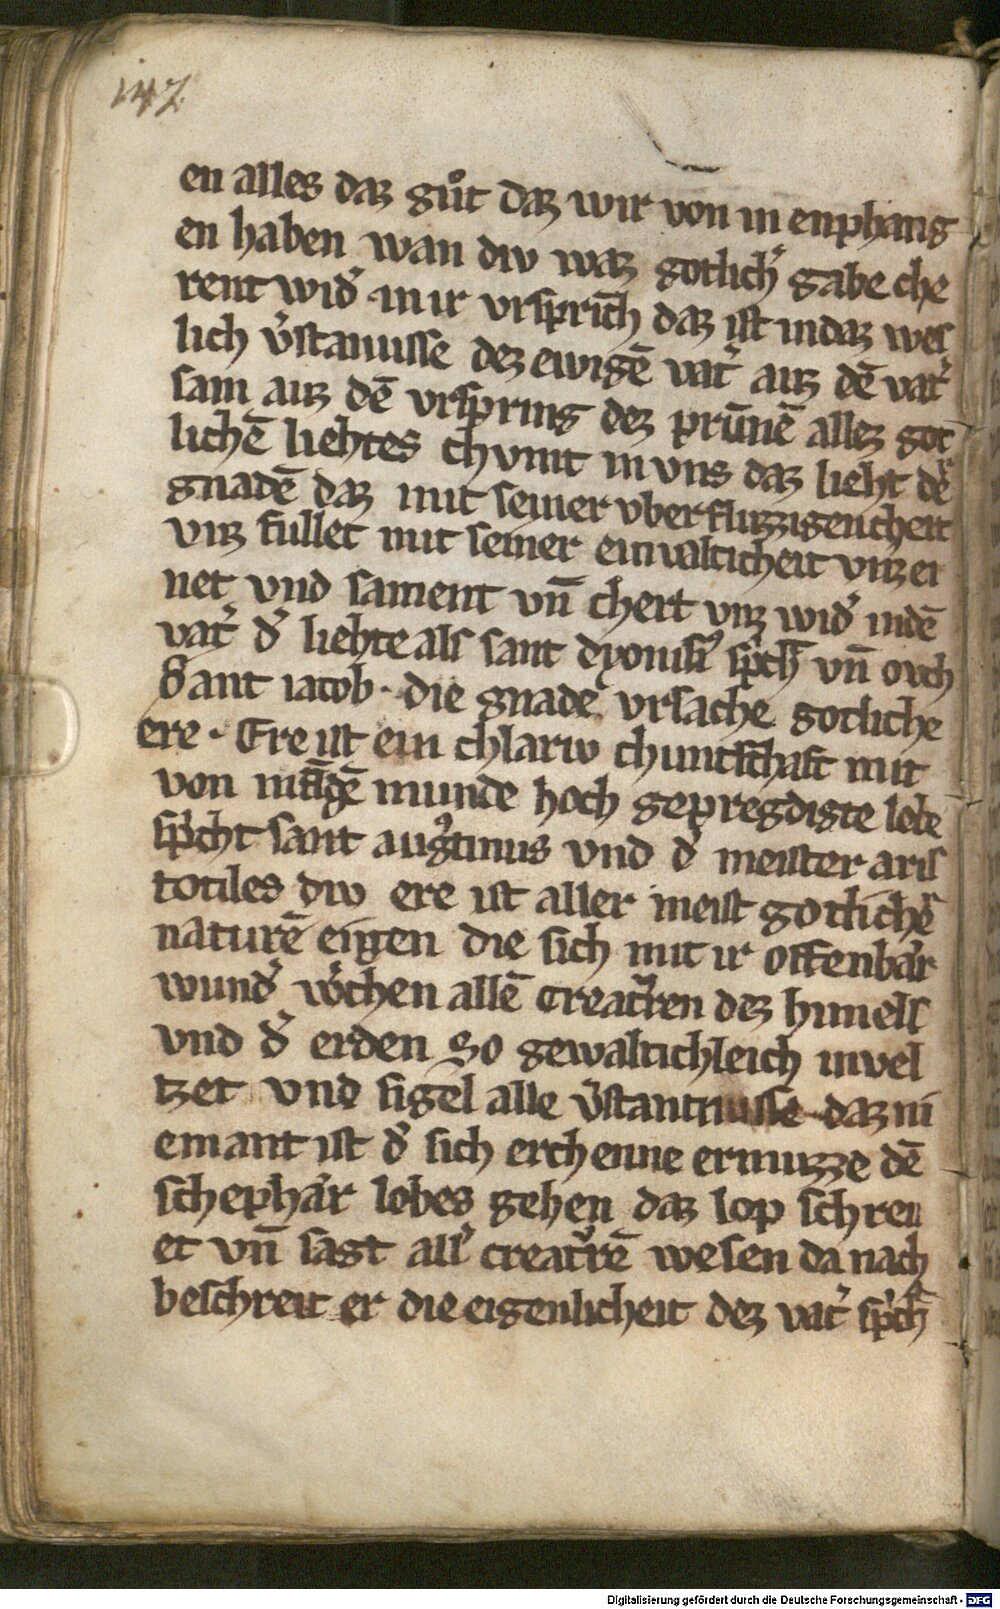 147
en alles daz gůt daz wir von in enphang
en haben wan div waz gotlich' gabe che
rent wid' in ir vrsprīch daz ist in daz wes
lich v'stannisse dez ewigē vat' auz dē vat'
sam auz dē vrspring dez prūnē allez got
lichē liehtes chvmt in vns daz lieht d'
gnadē daz mit seiner vberfluzzigencheit
vnz fullet mit seiner einvalticheit vnz ei
net vnd sament vn̄ chert vnz wid' in dē
vat' d' liehte als sant dyonisi' sp'ch vn̄ ovch
Sant iacob · die gnade vrsache gotliche
ere · Ere ist ein chlariv chuntschaft mit
von manigē munde hoch gepregdigte lobe
sp'cht sant aug'tinus vnd d' meister aris
totiles div ere ist aller meist gotlich'
naturē eigen die sich mit ir offenbar
wund' w'chen allē creat'ren dez himels
vnd d' erden So gewaltichleich in vel
tzet vnd sigel alle v'stantnusse daz ni
emant ist d' sich erchenne ermuzze dē
schephar lobes gehen daz lop schrei
et vn̄ sagt all' creat'rē wesen da nach
beschreit er die eigenlicheit dez vat' sp'cht
Digitalisierung gefördert durch die Deutsche Forschungsgemeinschaft - DFG